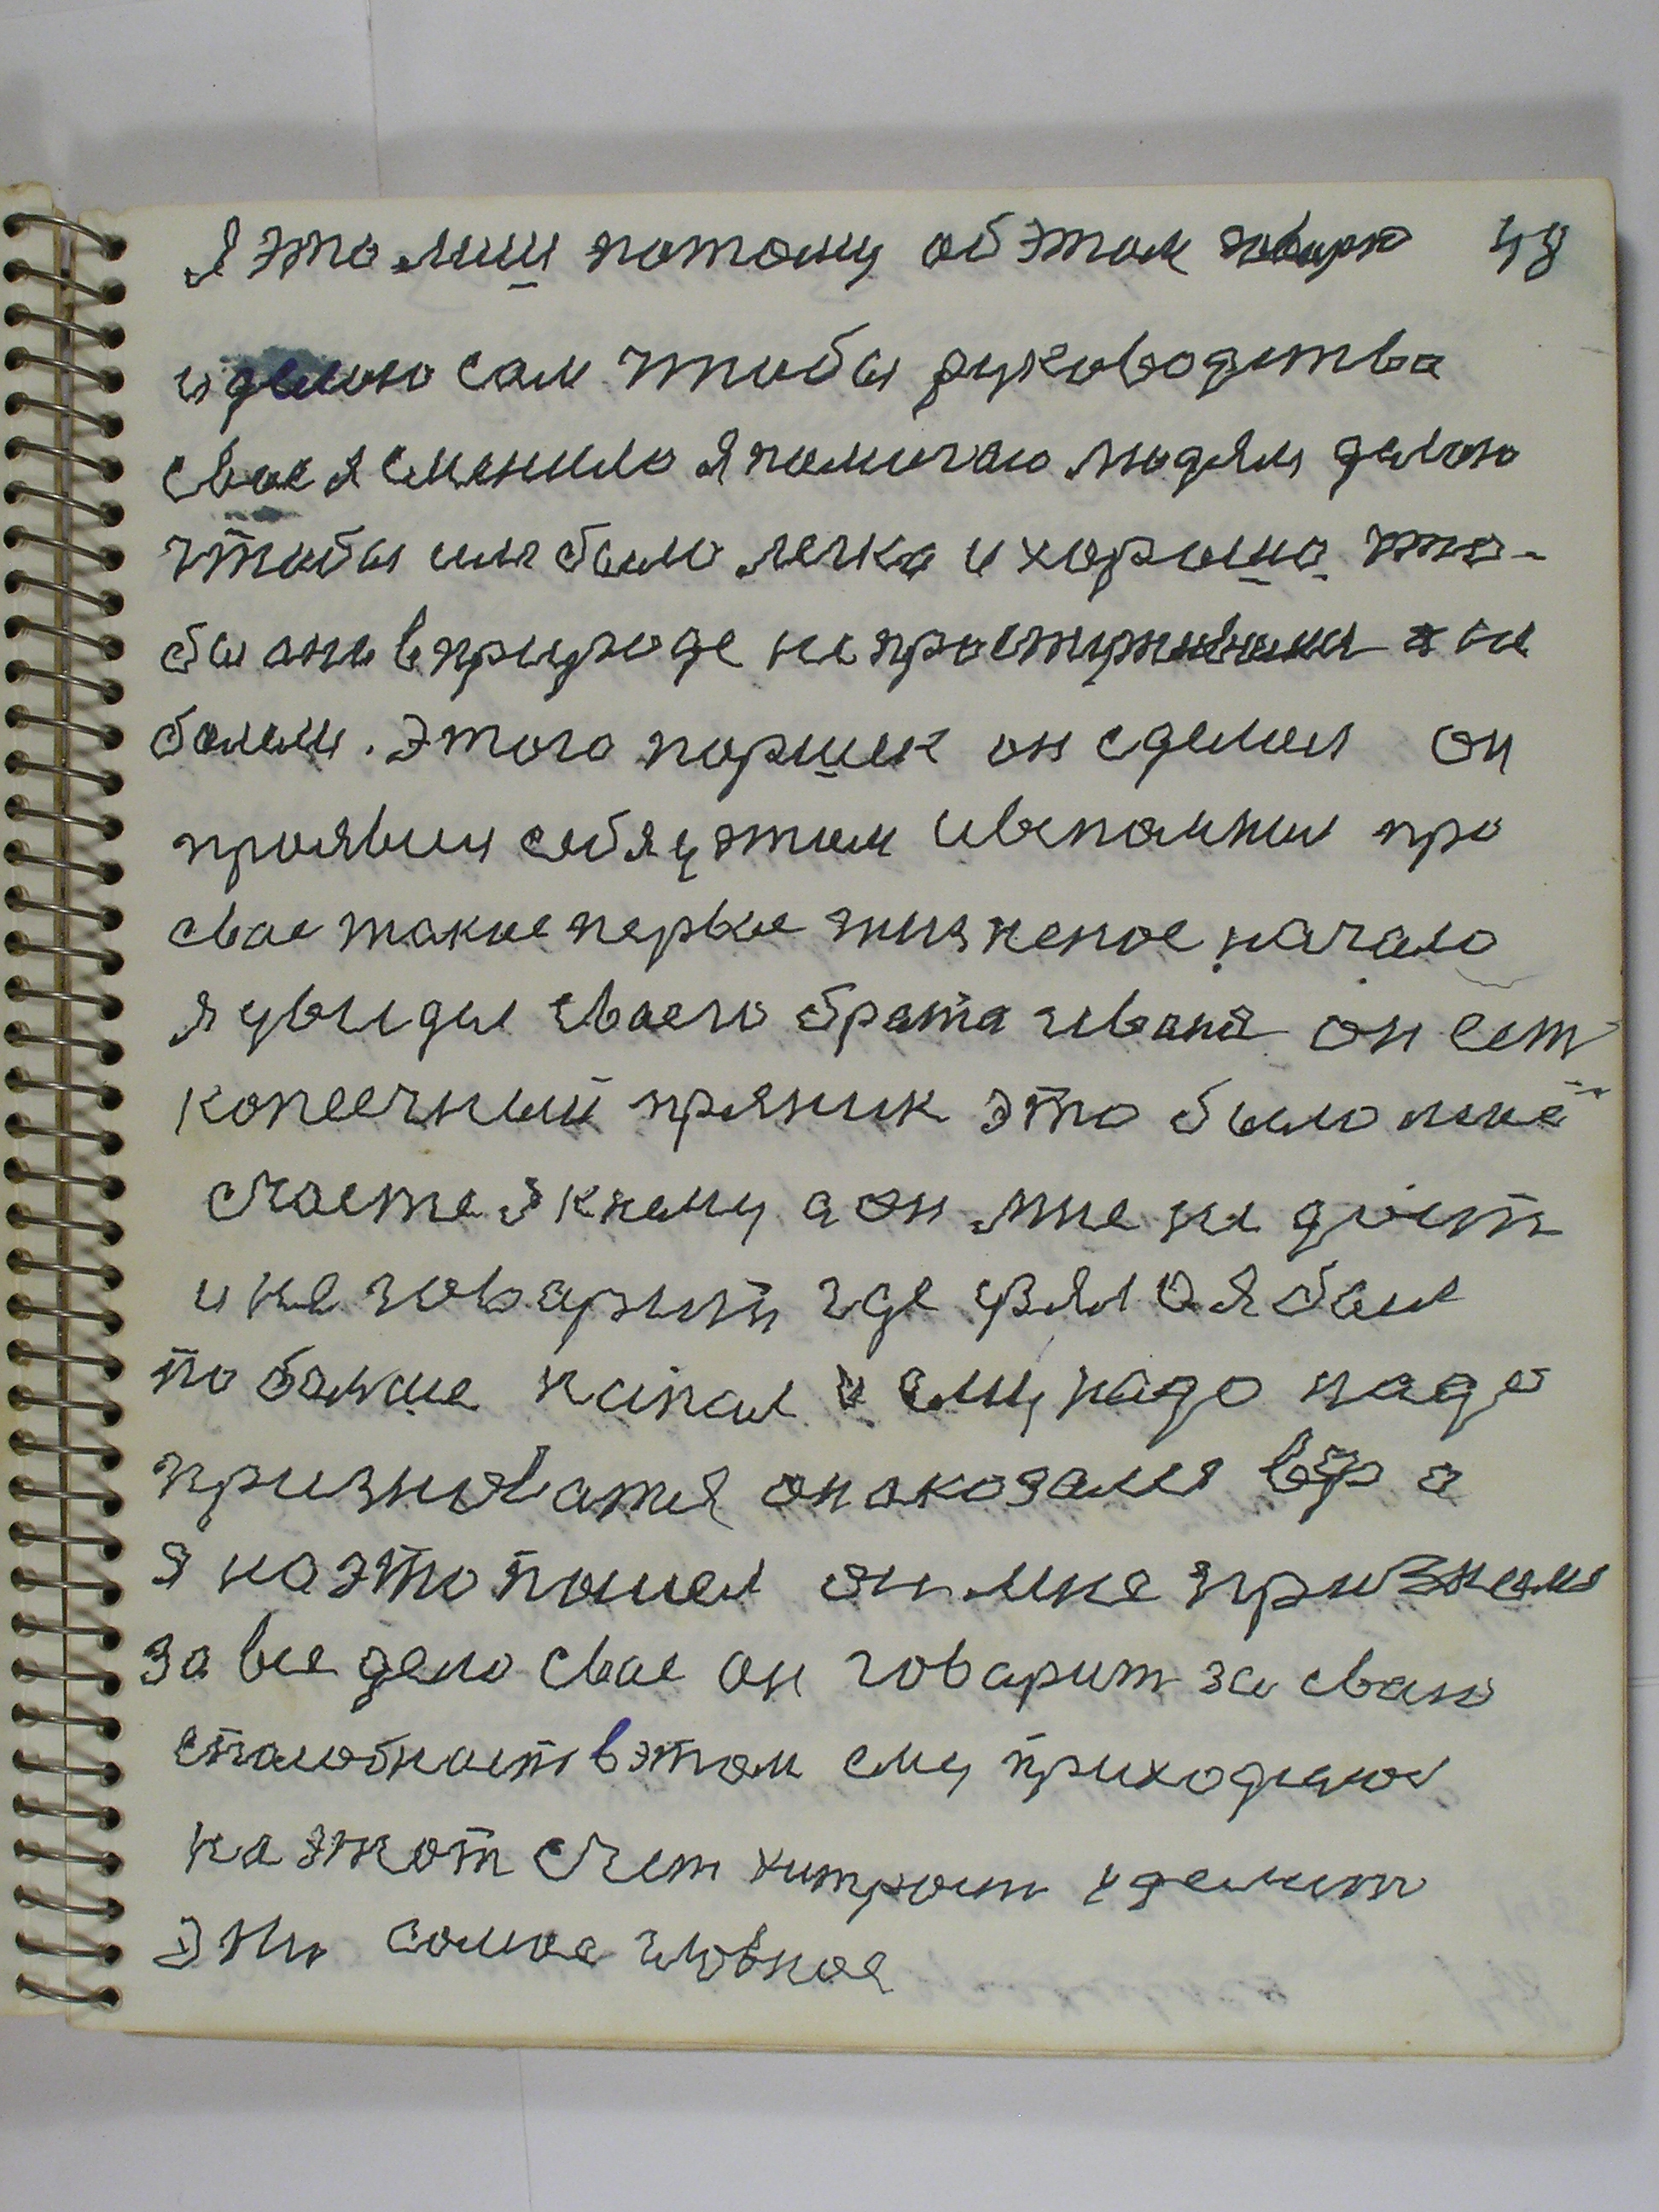 Я это лиш потому об этом говарю 48
и делаю сам чтобы руководства
свае я сменило я помогаю людям делаю
чтобы им было легко и хорошо что-
бы ани в природе не простуживалис а не
болели. Этого паршек он сделал он
проявил себя у этом и вспомнил про
свае такие первае жизненое начало
я увыдил сваего брата ивана он ест
копеечный пряник это было мне
счасте я к нему а он мне не даёт
и не говарыт где узял а я был
побольше напал и ему надо надо
признаватся он оказался вор а
я на это пошел он мне признался
за все дело свае он говарит за сваю
спасобност в этом ему приходилос
на этот счет хитрост уделит
это самое главное